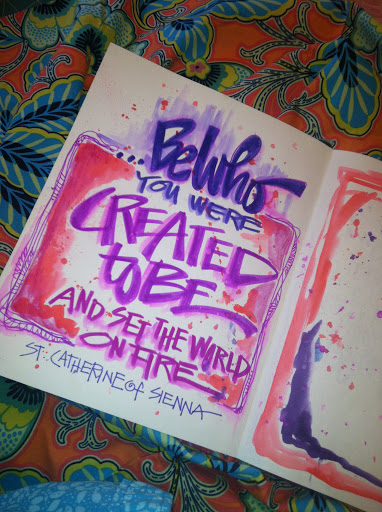 ...BeWho
YOU WERE
CREATED
toBE
AND SET THE WORLD
ON FIRE
ST. CATHERINE of SIENNA